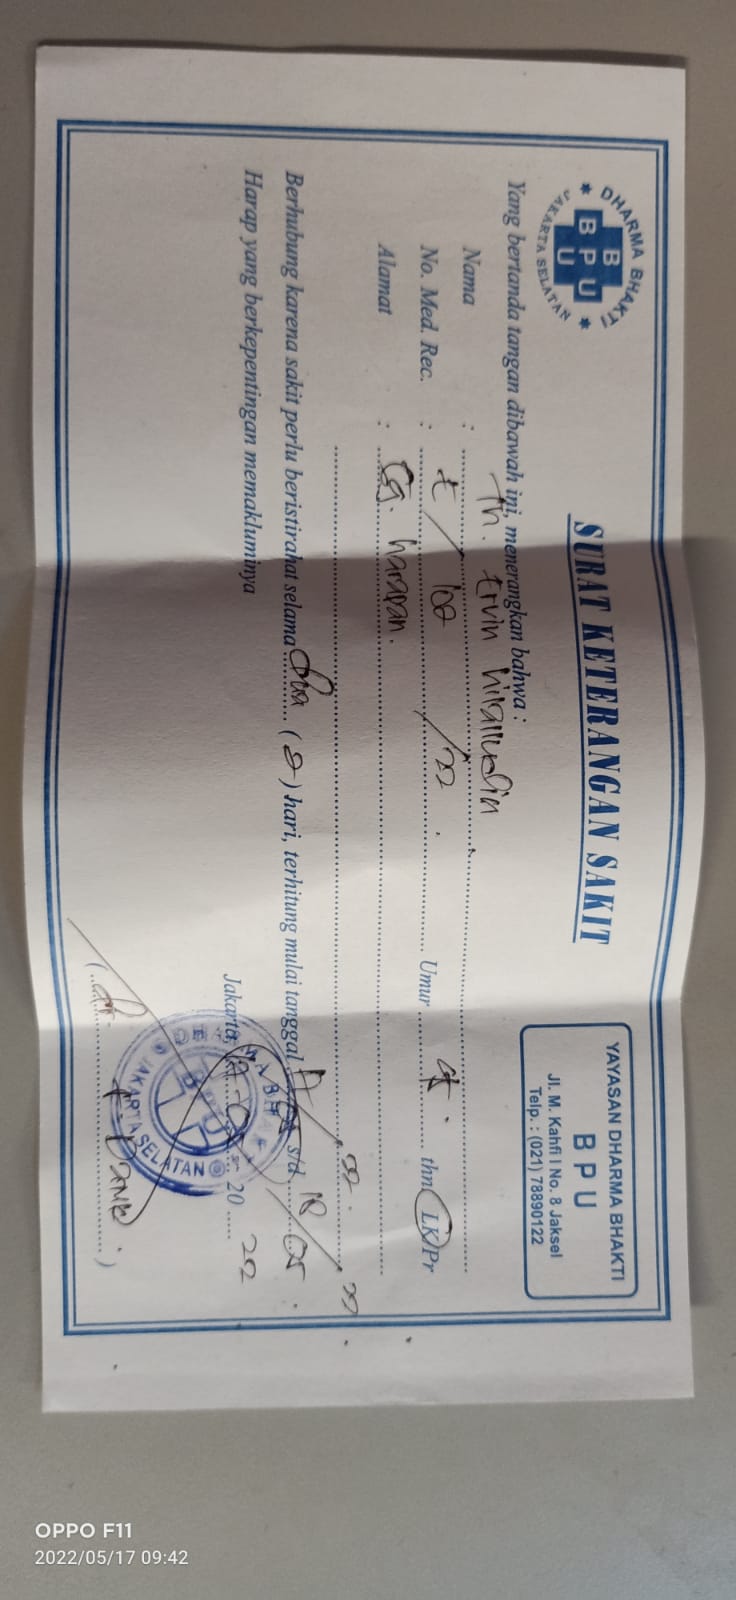 DHARMA BHAKTI
B
BPU
U
JAKARTA SELATAN
SURAT KETERANGAN SAKIT
YAYASAN DHARMA BHAKTI
B P U
Jl. M. Kahfi I No. 8 Jaksel
Telp. : (021) 78890122
Yang bertanda tangan dibawah ini, menerangkan bahwa :
Nama : Tn. Ervin
No. Med. Rec. : /22 Umur thn LK/Pr
Alamat : Gg. harapan.
Berhubung karena sakit perlu beristirahat selama Dua (2) hari, terhitung mulai tanggal s/d 18/05/22.
Harap yang berkepentingan memakluminya
Jakarta, 20 22
DHARMA BHAKTI
BPU
JAKARTA SELATAN
OPPO F11
2022/05/17 09:42